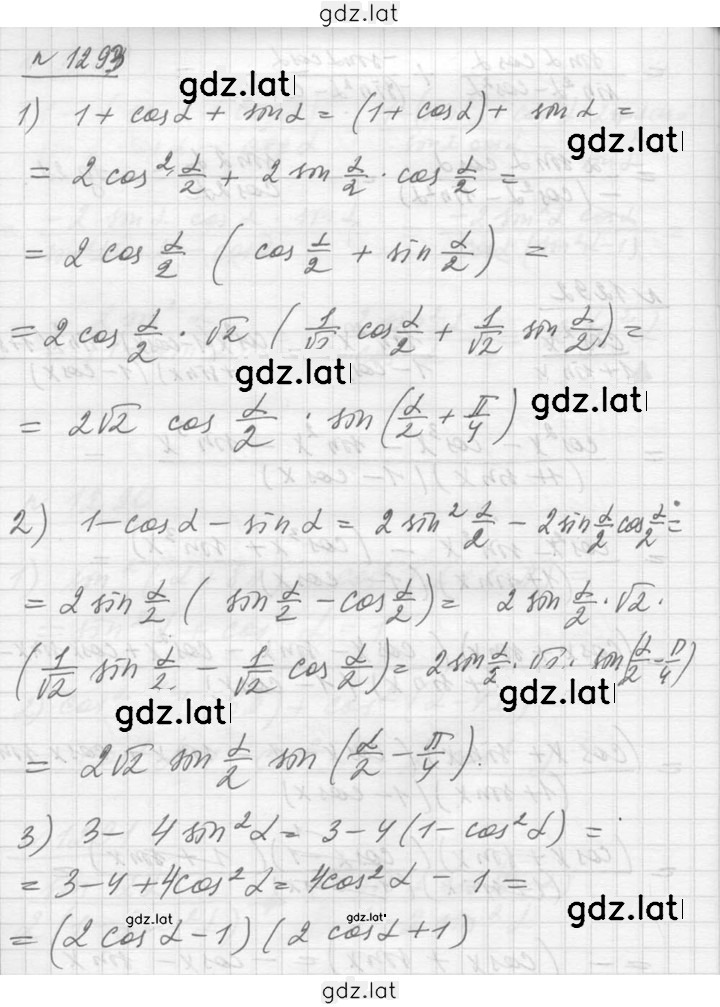 gdz.lat
n 1293
gdz.lat
1) 1 + cosα + sinα = (1 + cosα) + sinα =
gdz.lat
= 2 cos² α/2 + 2 sin α/2 · cos α/2 =
= 2 cos α/2 (cos α/2 + sin α/2) =
= 2 cos α/2 · √2 (1/√2 cos α/2 + 1/√2 sin α/2) =
gdz.lat
gdz.lat
= 2√2 cos α/2 · sin(α/2 + π/4)
2) 1 - cosα - sinα = 2 sin² α/2 - 2 sin α/2 cos α/2 =
= 2 sin α/2 (sin α/2 - cos α/2) = 2 sin α/2 · √2 ·
(1/√2 sin α/2 - 1/√2 cos α/2) = 2 sin α/2 · √2 · sin(α/2 - π/4)
gdz.lat
gdz.lat
= 2√2 sin α/2 sin (α/2 - π/4).
3) 3 - 4 sin²α = 3 - 4(1 - cos²α) =
= 3 - 4 + 4cos²α = 4cos²α - 1 =
gdz.lat
gdz.lat
gdz.lat
= (2 cos α - 1)(2 cosα + 1)
gdz.lat